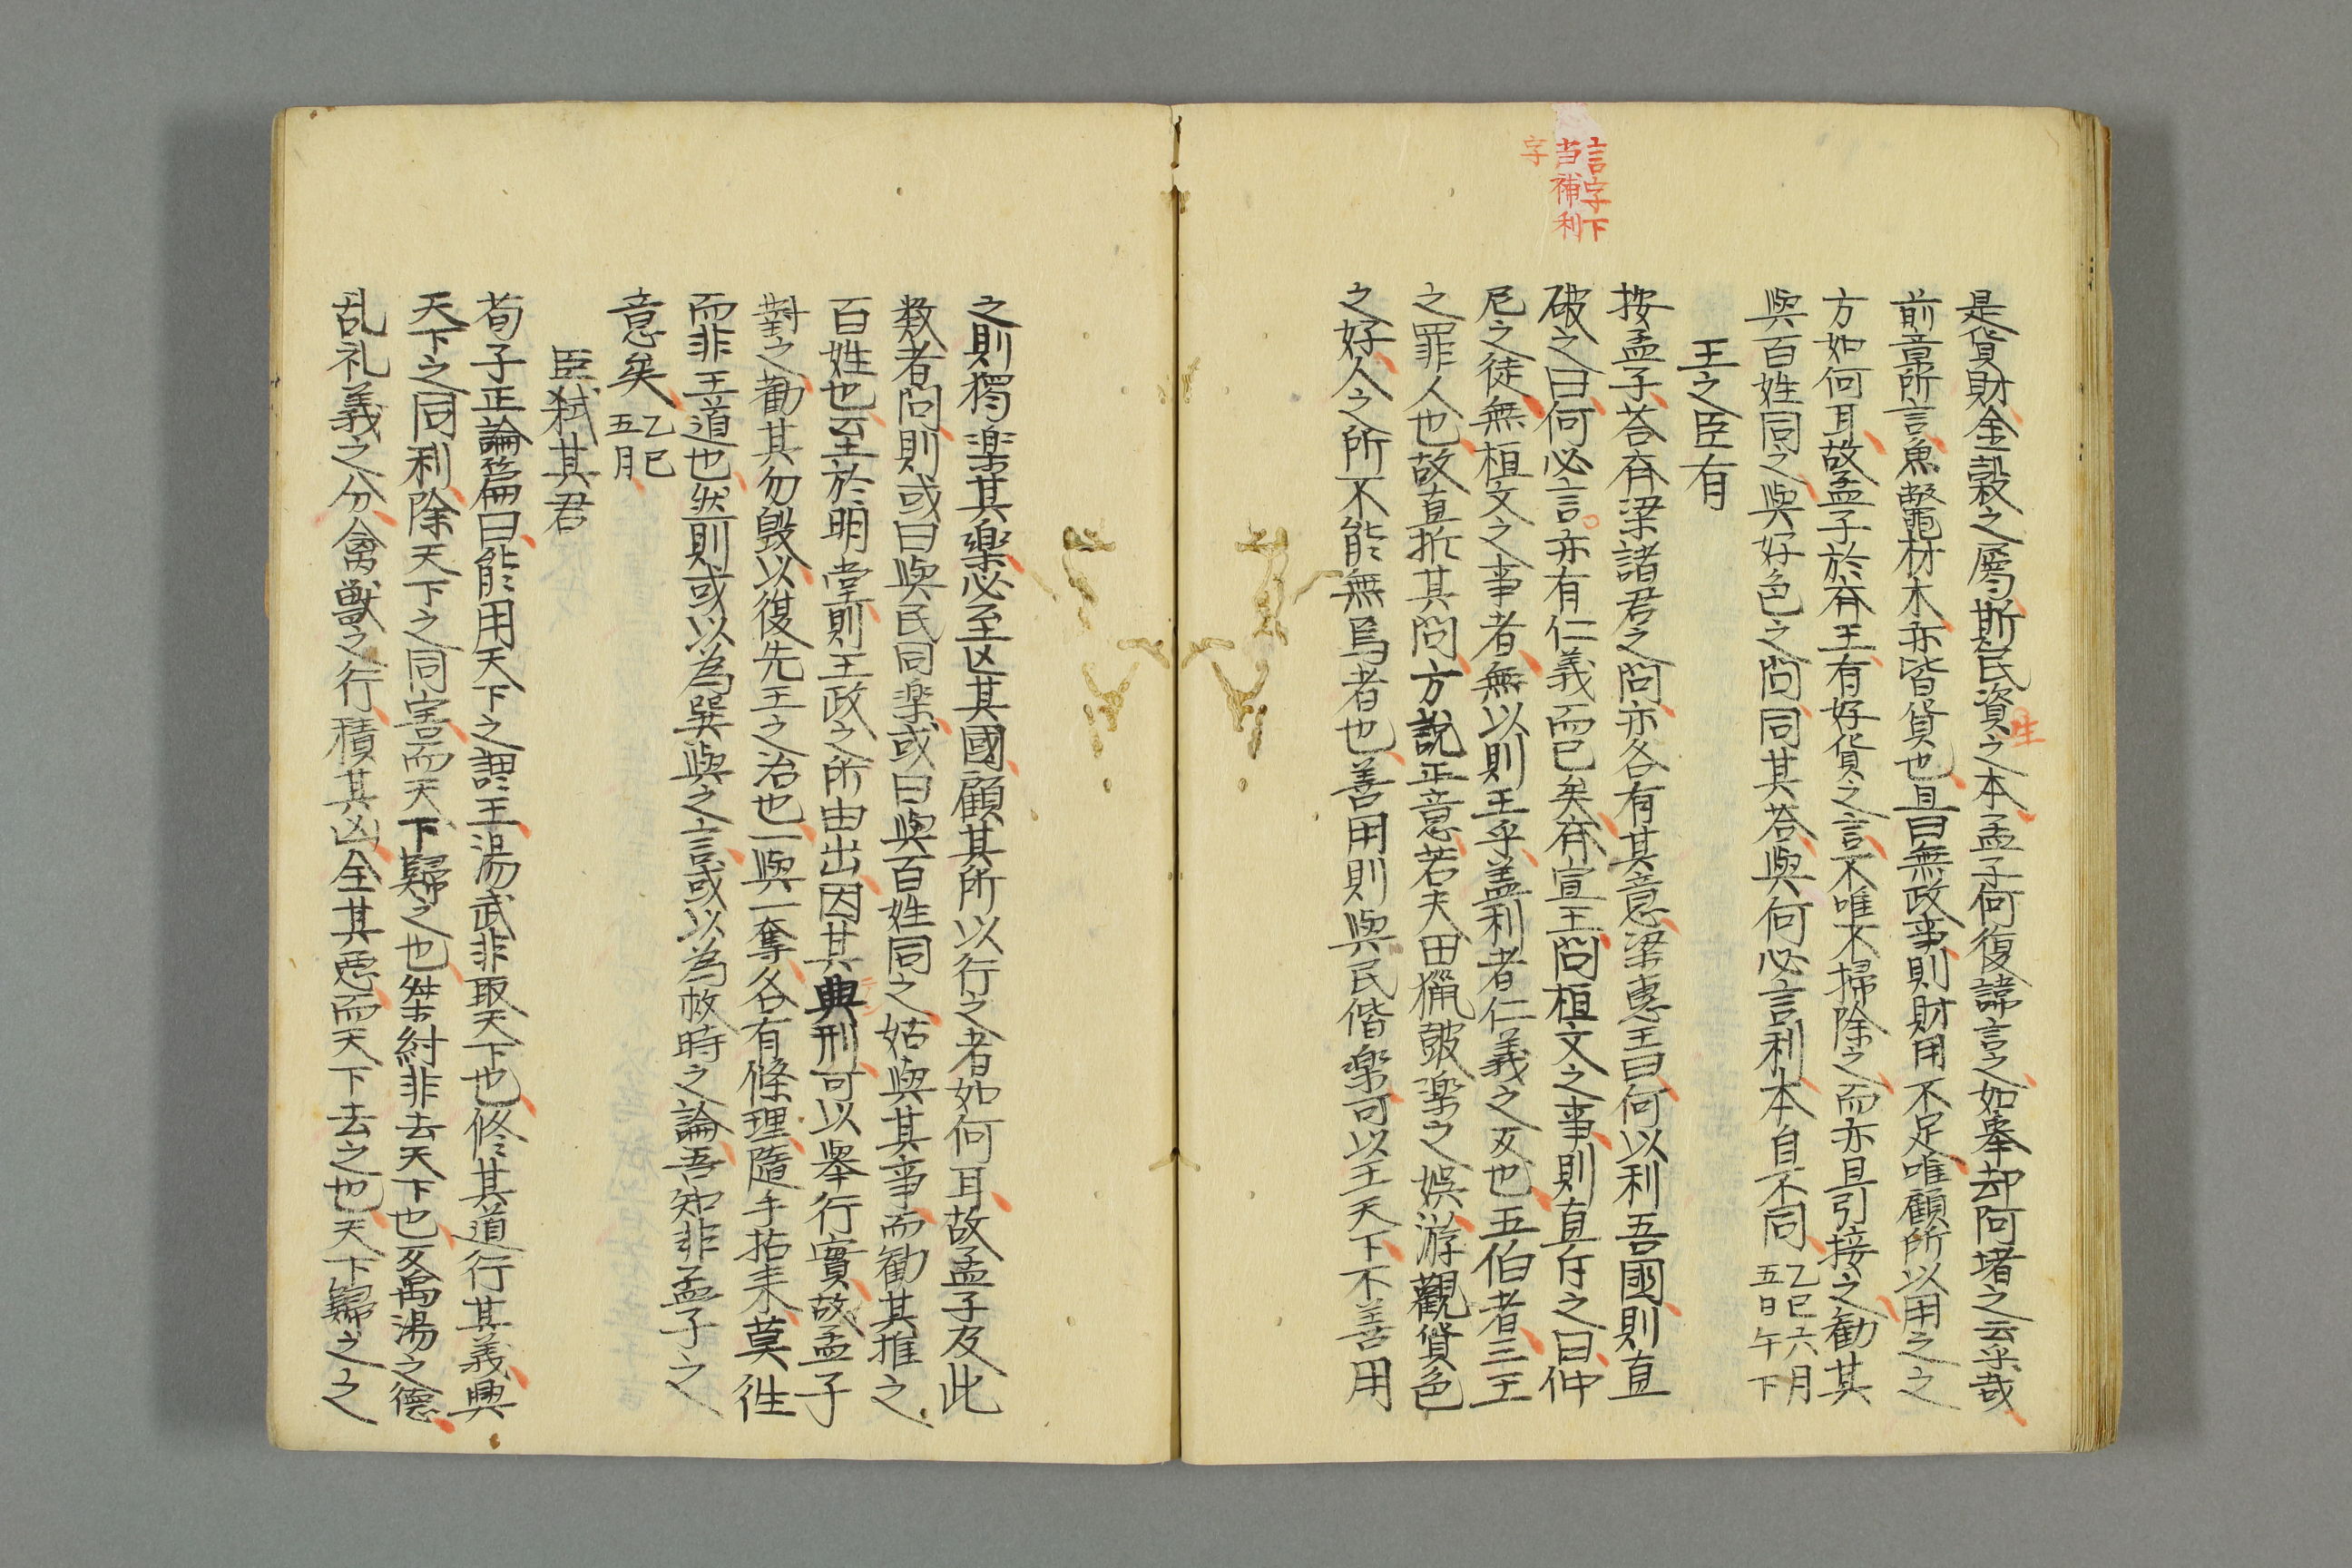 言字下
当補利
字
是貨財金穀之屬斯民資之本孟子何復諱言之如舉却阿堵之云乎哉
生
前章所言魚鼈材木亦皆貨也且曰無政事則財用不足唯顧所以用之之
方如何耳故孟子於斉王有好貨之言不唯不掃除之而亦且引接之勸其
與百姓同之與好色之問同其荅與何必言利本自不同乙巳六月
五日午下
王之臣有
按孟子荅斉梁諸君之問亦各有其意梁惠王曰何以利吾國則直
破之曰何必言亦有仁義而已矣斉宣王問桓文之事則直斥之曰仲
尼之徒無桓文之事者無以則王乎盖利者仁義之反也五伯者三王
之罪人也故直折其問方説正意若夫田獵皷楽之娯游觀貨色
之好人之所不能無焉者也善用則與民偕楽可以王天下不善用
之則獨楽其楽必至凶其國顧其所以行之者如何耳故孟子及此
数者問則或曰與民同楽或曰與百姓同之姑與其事而勧其推之
百姓也至於明堂則王政之所由出因其典刑可以舉行實故孟子
對之勸其勿毀以復先王之治也一與一奪各有條理隨手拈来莫徃
而非王道也然則或以為巽與之言或以為救時之論吾知非孟子之
意矣乙巳
五月
臣弑其君
荀子正論篇曰能用天下之謂王湯武非取天下也修其道行其義興
天下之同利除天下之同害而天下歸之也桀紂非去天下也反禹湯之德
乱礼義之分禽獣之行積其凶全其悪而天下去之也天下歸之之